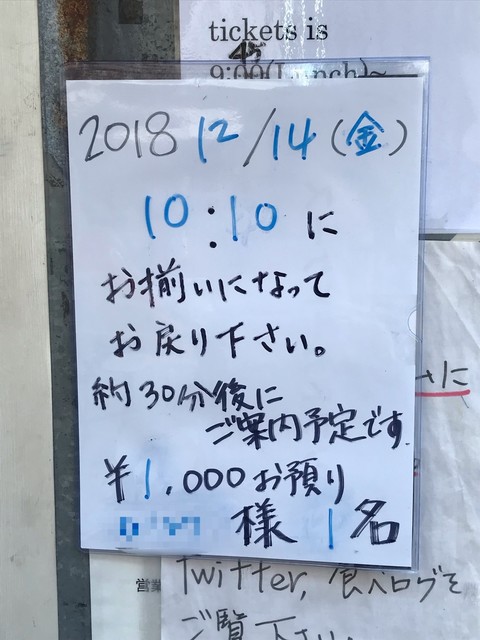 tickets is
9:00(Lunch)~
2018 12/14(金)
10:10に
お揃いになって
お戻り下さい。
約30分後に
ご案内予定です.
¥1,000お預り
様 1名
に
営業
Twitter,食べログを
ご覧下さい